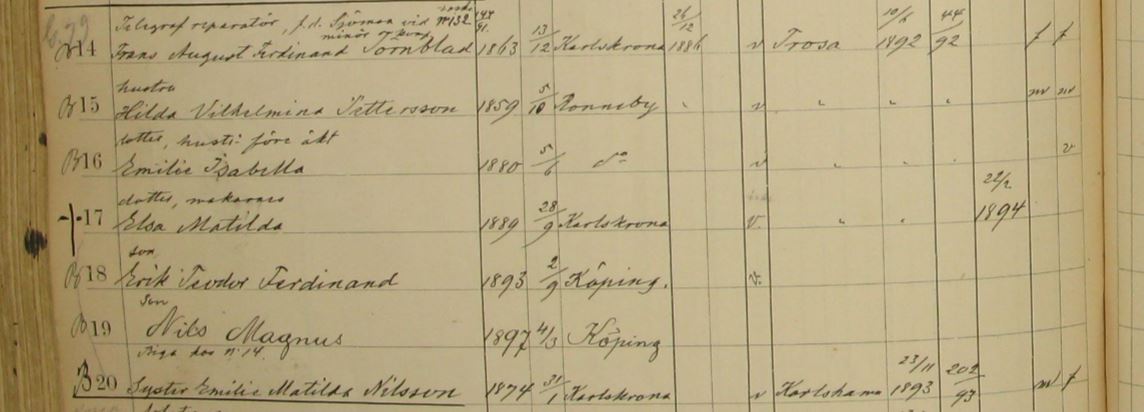 Telegraf reparatör, f.d. Sjöman vid
№ 132
B 14 Frans August Ferdinand Törnblad 1863 13/12 Karlskrona 26/12 1886 v Trosa 10/6 1892 44/92 f f
hustru
B 15 Hilda Vilhelmina Pettersson 1859 5/10 Ronneby " v " " " nv nv
dotter, hustr: före äkt
B 16 Emilie Isabella 1880 5/6 do v " " " v
dotter, makarnes
17 Elsa Matilda 1889 28/9 Karlskrona v. " " 22/2 1894
son
B 18 Erik Teodor Ferdinand 1893 2/9 Köping. v.
Son
B 19 Nils Magnus 1897 4/3 Köping
Piga hos № 14.
B 20 Syster Emilie Matilda Nilsson 1874 31/1 Karlskrona v Karlshamn 23/11 1893 202/93 nv f